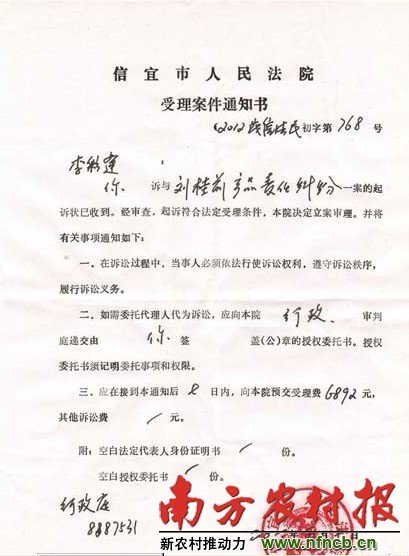 信宜市人民法院
受理案件通知书
(2012)茂信法民初字第768号
李
你 诉与刘桂 产品责任纠纷一案的起
诉状已收到。经审查，起诉符合法定受理条件，本院决定立案审理。并将
有关事项通知如下：
一、在诉讼过程中，当事人必须依法行使诉讼权利，遵守诉讼秩序，
履行诉讼义务。
二、如需委托代理人代为诉讼，应向本院 行政 审判
庭递交由 你 签 盖(公)章的授权委托书。授权
委托书须记明委托事项和权限。
三、应在接到本通知后 七 日内，向本院预交受理费6892元；
其他诉讼费 / 元。
附：空白法定代表人身份证明书 / 份。
空白授权委托书 / 份。
行政庭
8887531
南方农村报
新农村推动力 www.nfncb.cn